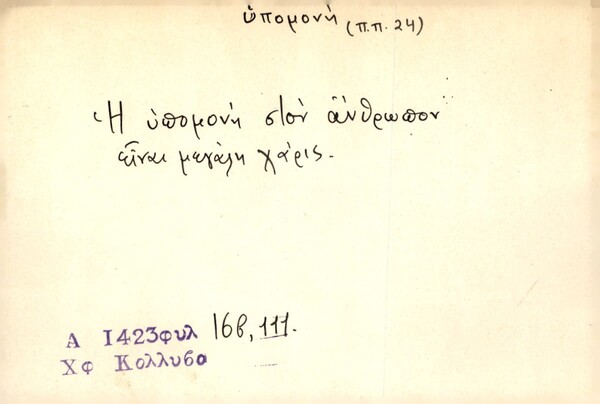 ὑπομονή (π.π. 24)
Ἡ ὑπομονή στὸν ἄνθρωπον
εἶναι μεγάλη χάρις.
Α 1423φυλ 16β, 111.
Χφ Κολλυβα